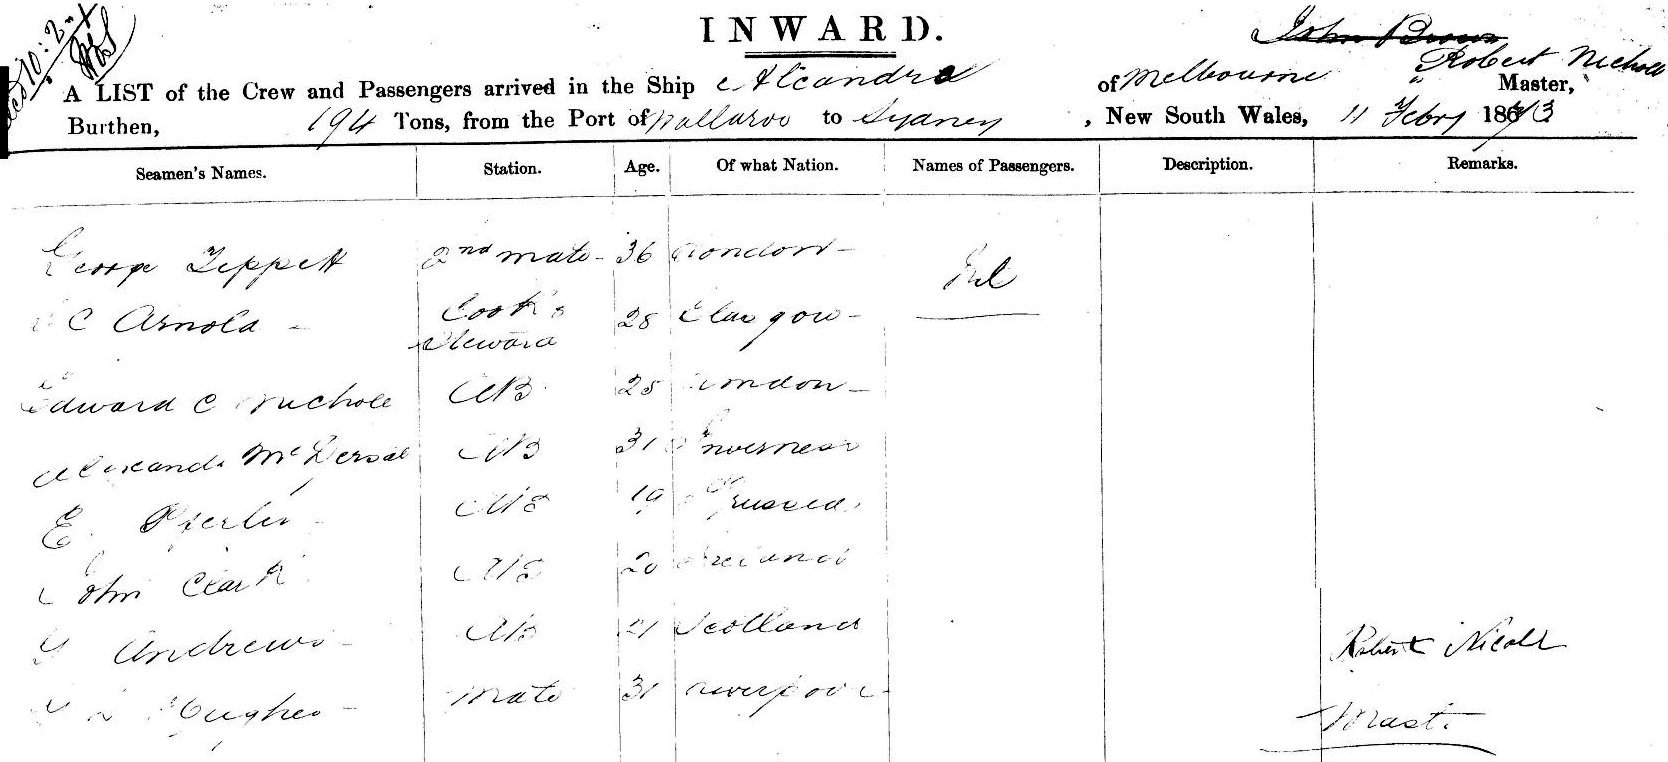 INWARD.
John Brown
Robert Nicholl
A LIST of the Crew and Passengers arrived in the Ship Alexandra of Melbourne " Master,
Burthen, 194 Tons, from the Port of Wallaroo to Sydney, New South Wales, 11 Febry 1873
Seamen's Names. Station. Age. Of what Nation. Names of Passengers. Description. Remarks.
George Teppett 2nd mate - 36 London - Nil
C Arnold - Cook & 28 Glasgow -
Steward
Edward C Nicholl AB 28 London -
Alexander McDersal AB 31 Inverness
E. AB 19 Prussia
John Clark AB 20 Ireland
Andrews - AB 21 Scotland
Robert Nicoll
Hughes - Mate 31 Liverpool -
Mast.